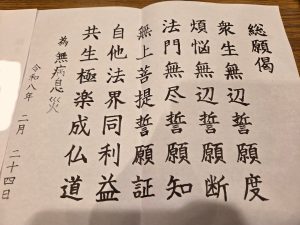 総願偈
衆生無辺誓願度
煩悩無辺誓願断
法門無尽誓願知
無上菩提誓願証
自他法界同利益
共生極楽成仏道
為無病息災
令和八年 二月 二十四日